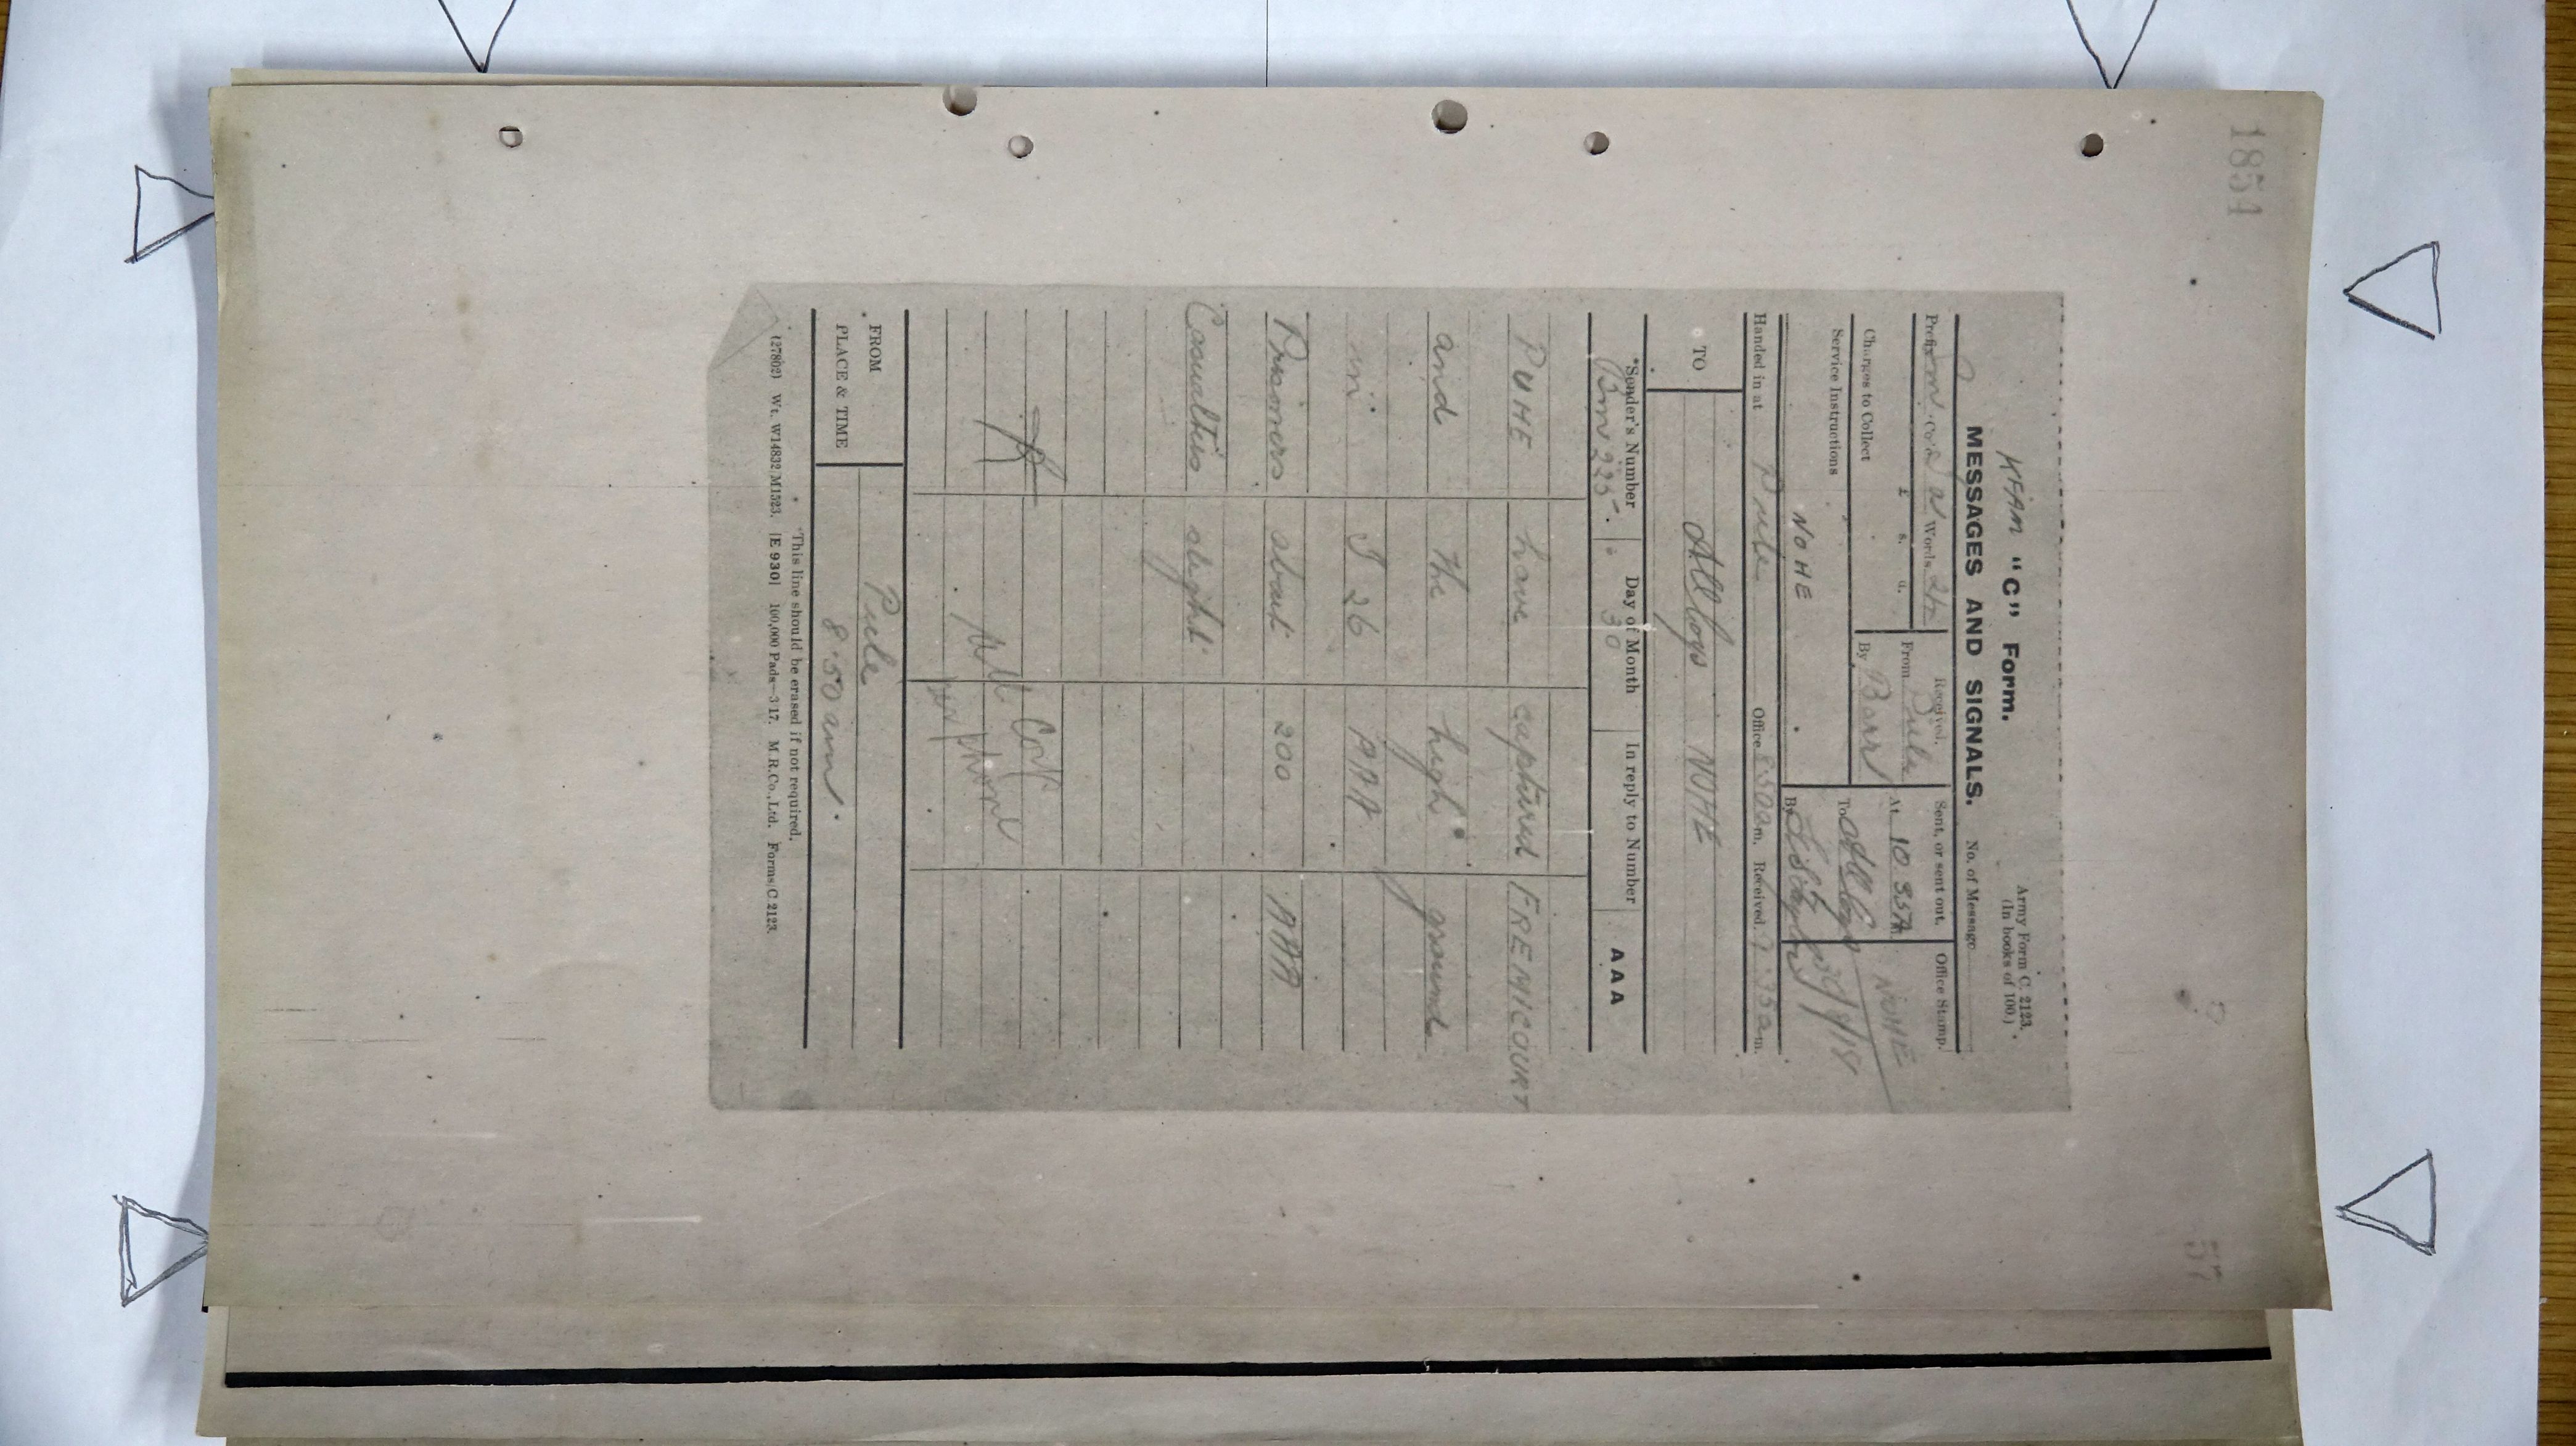 1854
KFAM "C" Form.
Army Form C. 2123.
(In books of 100.)
MESSAGES AND SIGNALS.
No. of Message
Prefix Sm Code Words 22
Received.
Sent, or sent out.
Office Stamp.
£ s. d.
From Pule
At 10.35A m.
NOHE
Charges to Collect
By Barr
To All Coys
Service Instructions
NOHE
By
Handed in at Pule Office 8.50 a m. Received 9.35 a m.
TO All Coys NOHE
*Sender's Number
Day of Month
In reply to Number
AAA
Bm 225.
30
PUHE have captured FREMICOURT
and the high ground
in I 26 AAA
Prisoners about 200 AAA
Casualties slight
All Corps
per phone
FROM Pule
PLACE & TIME 8.50 am.
*This line should be erased if not required.
(27802) Wt. W14832/M1523. [E 930] 100,000 Pads—3 17. M.R.Co., Ltd. Forms/C 2123.
57